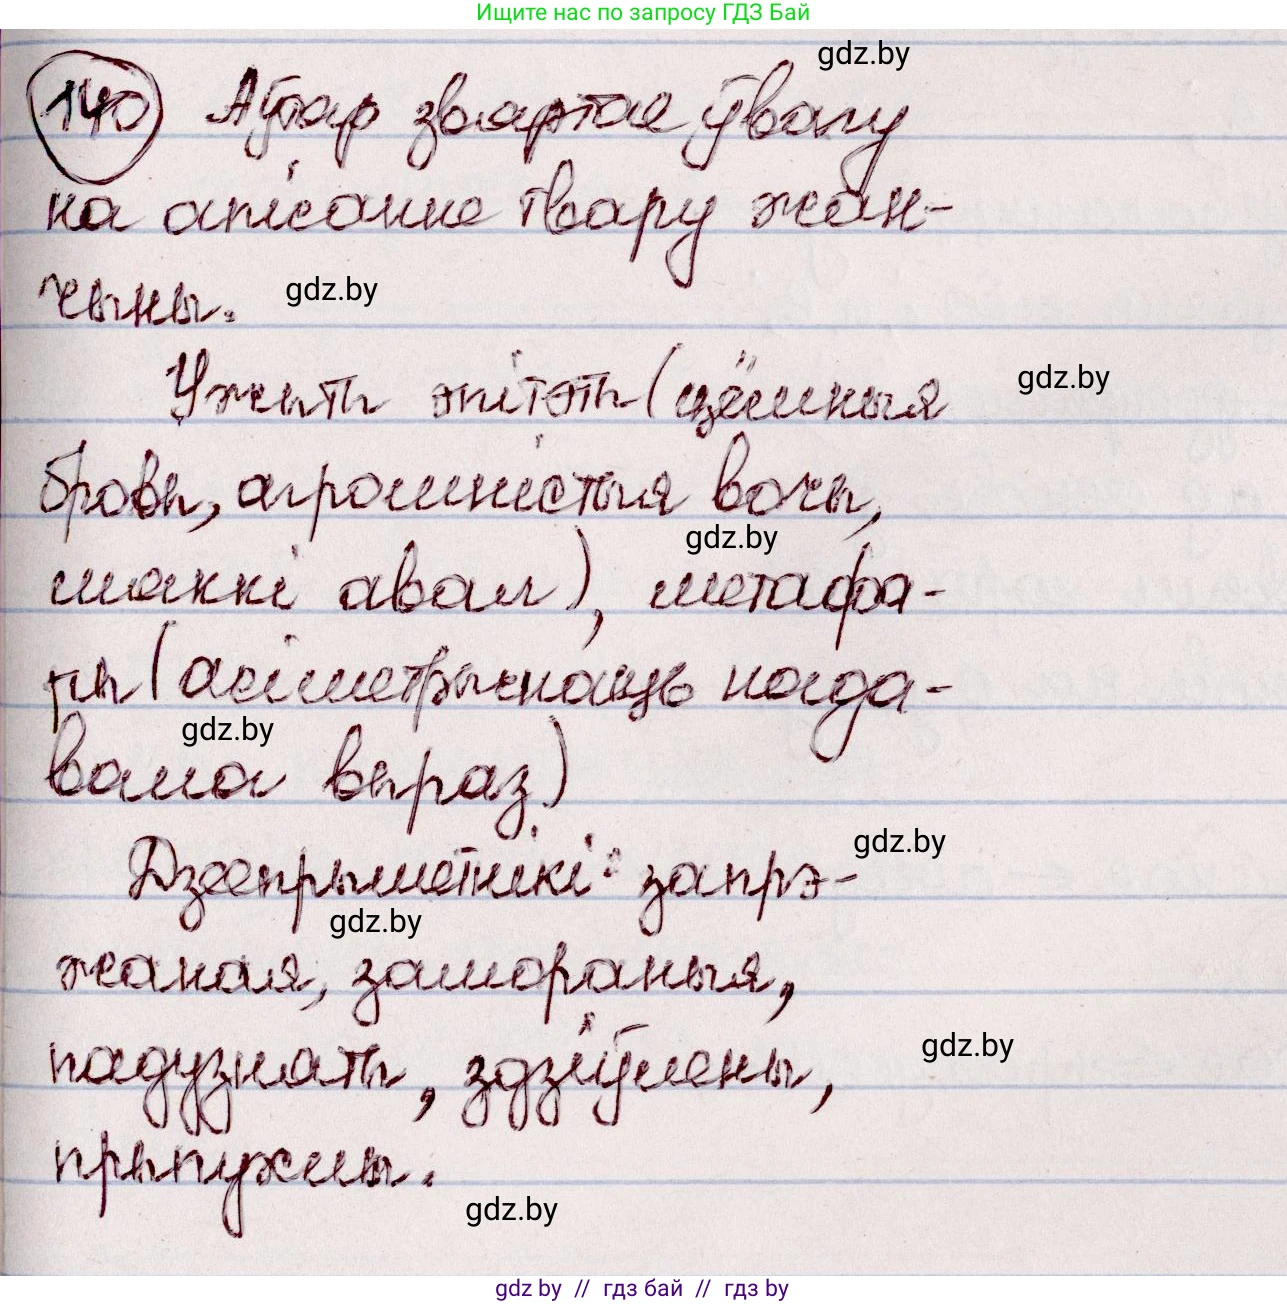 Ищите нас по запросу ГДЗ Бай
gdz.by
140 Аўтар звяртае ўвагу
на апісанне твару жан-
чыны. gdz.by
Ужыты эпітэты (цёмныя gdz.by
бровы, агромністыя вочы,
gdz.by
мяккі авал), метафа-
ры (асіметрычнасць надa-
gdz.by
вала выраз)
gdz.by
Дзеепрыметнікі: запрэ-
gdz.by
жаная, замораныя,
падузняты, здзіўлены, gdz.by
прыпухлы.
gdz.by
gdz by // гдз бай // гдз by